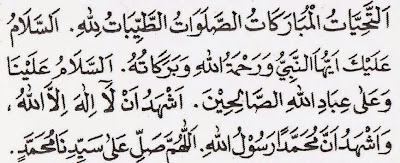 اَلتَّحِيَّاتُ الْمُبَارَكَاتُ الصَّلَوَاتُ الطَّيِّبَاتُ لِلّٰهِ. اَلسَّلَامُ
عَلَيْكَ اَيُّهَا النَّبِيُّ وَرَحْمَةُ اللهِ وَبَرَكَاتُهُ. اَلسَّلَامُ عَلَيْنَا
وَعَلَى عِبَادِ اللهِ الصَّالِحِيْنَ. اَشْهَدُ اَنْ لَآ اِلٰهَ اِلَّا اللهُ،
وَاَشْهَدُ اَنَّ مُحَمَّدًا رَسُوْلُ اللهِ. اَللّٰهُمَّ صَلِّ عَلَى سَيِّدِنَا مُحَمَّدٍ.